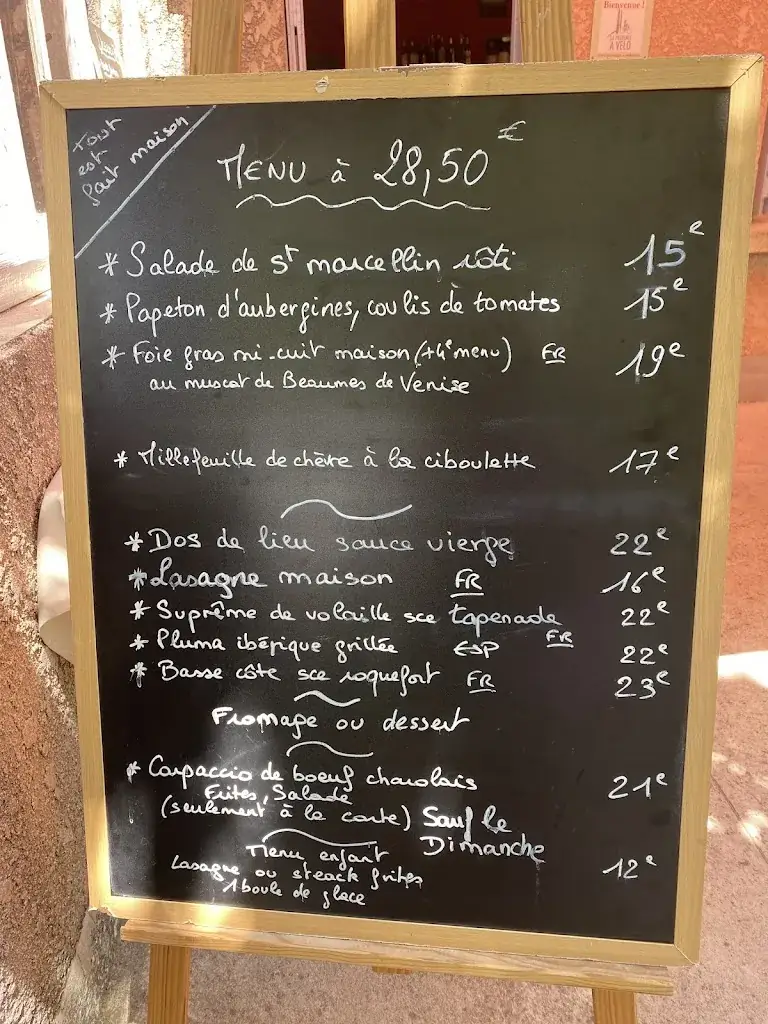 Bienvenue !
À VÉLO
Tout
est
fait maison
MENU à 28,50 €
* Salade de St marcellin rôti 15€
* Papeton d'aubergines, coulis de tomates 15€
* Foie gras mi-cuit maison (+4€ menu) FR 19€
au muscat de Beaumes de Venise
* Millefeuille de chèvre à la ciboulette 17€
* Dos de lieu sauce vierge 22€
* Lasagne maison FR 16€
* Suprême de volaille sce tapenade FR 22€
* Pluma ibérique grillée ESP 22€
* Basse côte sce roquefort FR 23€
Fromage ou dessert
* Carpaccio de boeuf charolais 21€
Frites, Salade
(seulement à la carte) Sauf le
Dimanche
Menu enfant 12€
Lasagne ou steack frites
1 boule de glace